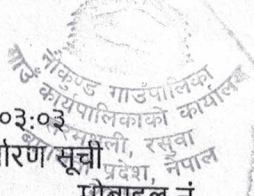 नौकुण्ड गाउँपालिका
गाउँ कार्यपालिकाको कार्यालय
रसुवा
प्रदेश, नेपाल
०३:०३
सूची
मोबाइल नं